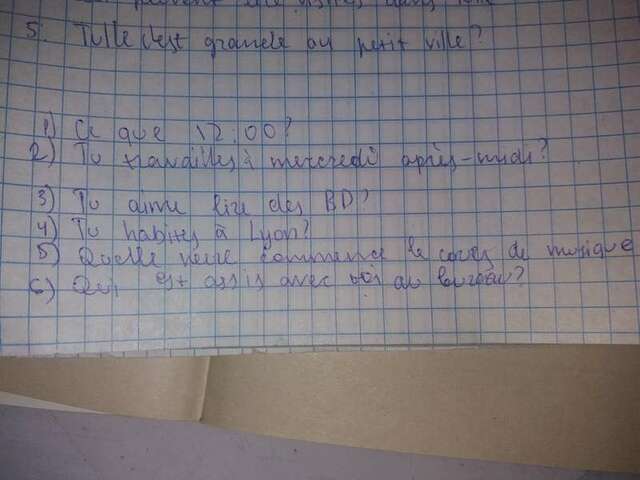 5. Tulle c'est grande ou petit ville?
1) Ce que 12:00?
2) Tu travailles à mercredi après-midi?
3) Tu aime lire des BD?
4) Tu habites à Lyon?
5) Quelle heure commence le cours de musique
6) Qui est assis avec toi au bureau?